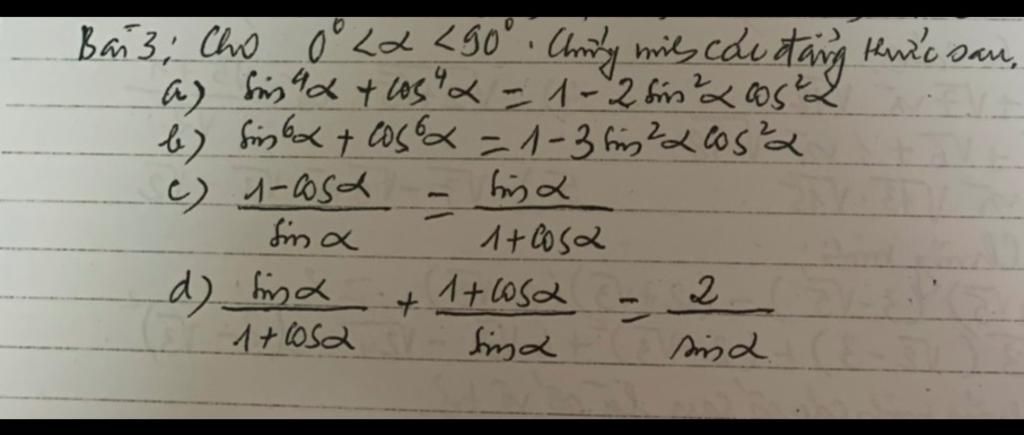 Bài 3: Cho 0° < α < 90°. Chứng minh các đẳng thức sau.
a) sin⁴α + cos⁴α = 1 - 2 sin²α cos²α
b) sin⁶α + cos⁶α = 1 - 3 sin²α cos²α
c) (1 - cosα)/(sinα) = (sinα)/(1 + cosα)
d) (sinα)/(1 + cosα) + (1 + cosα)/(sinα) = 2/(sinα)